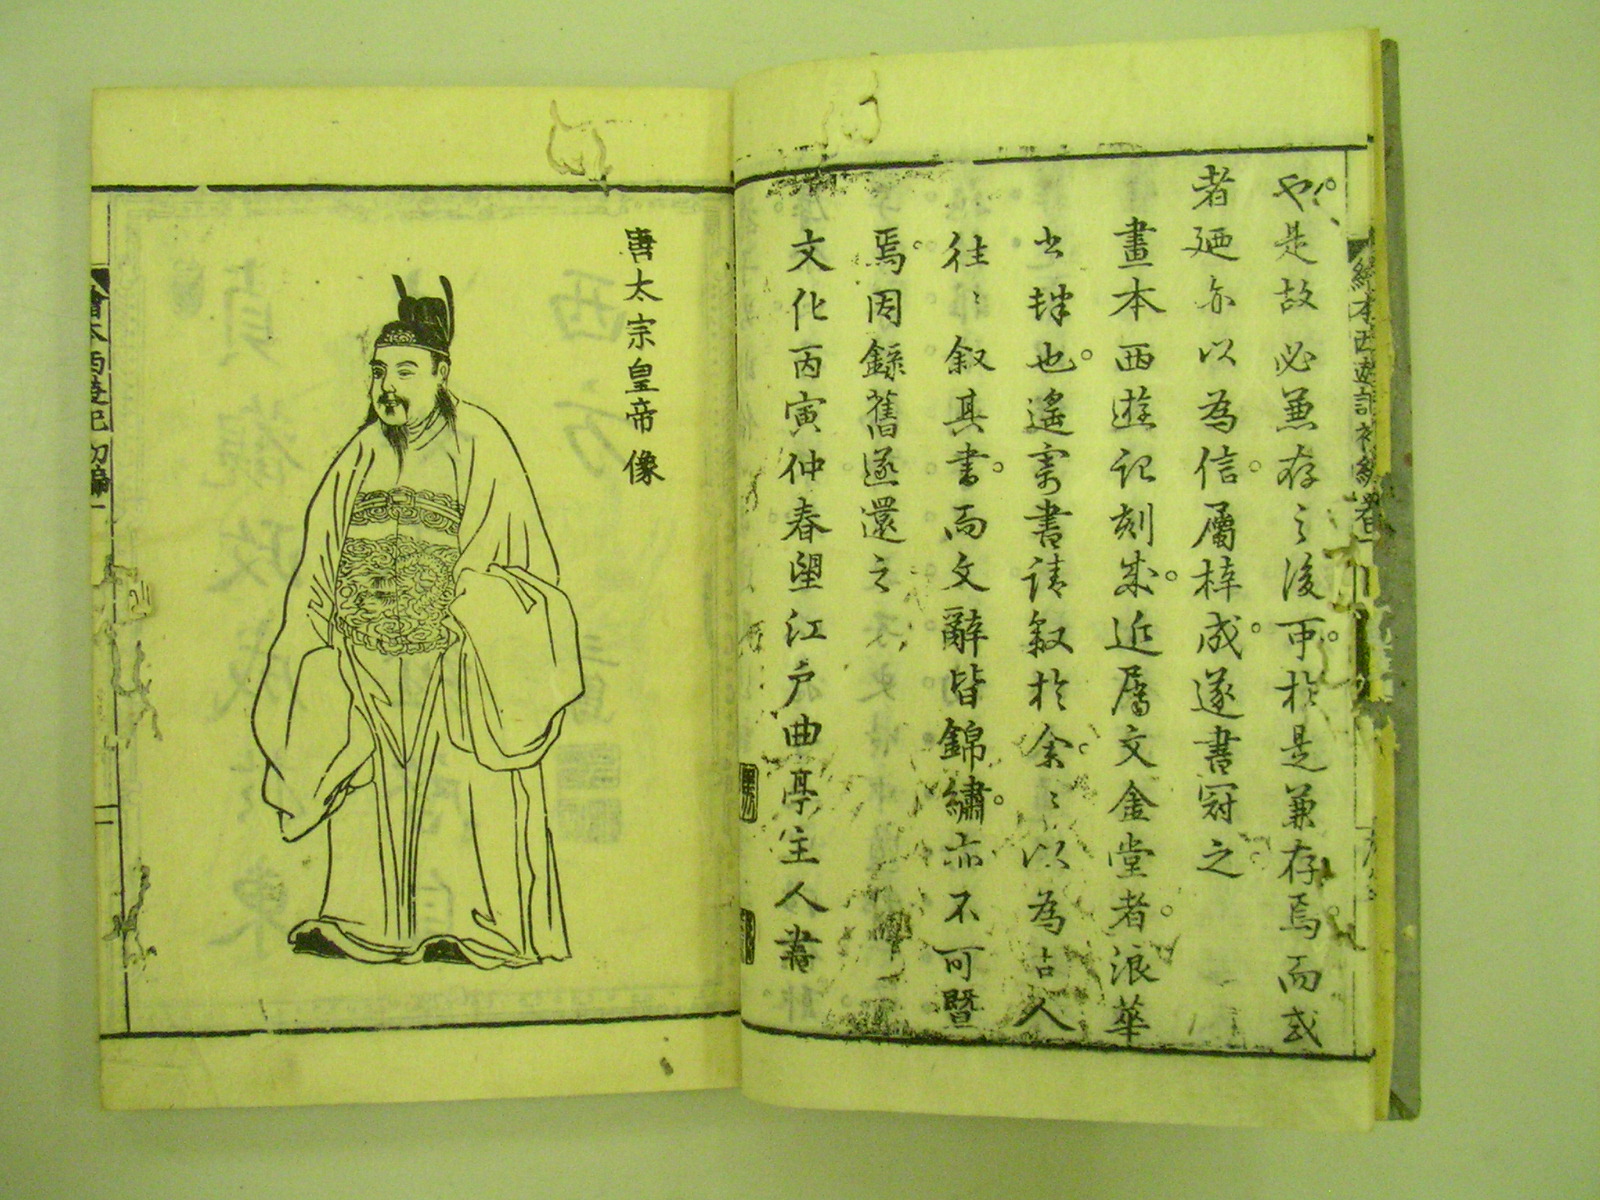 繪本西遊記初編卷一
也是故必兼存之後可於是兼存焉而或
者廼亦以為信屬梓成遂書冠之
畫本西遊記刻成近屬文金堂者浪華
也遙寄書請叙於余々以為古人
往々叙其書而文辭皆錦繡亦不可暨
焉因錄舊遂還之
文化丙寅仲春望江戶曲亭主人書
唐太宗皇帝像
繪本西遊記初編一